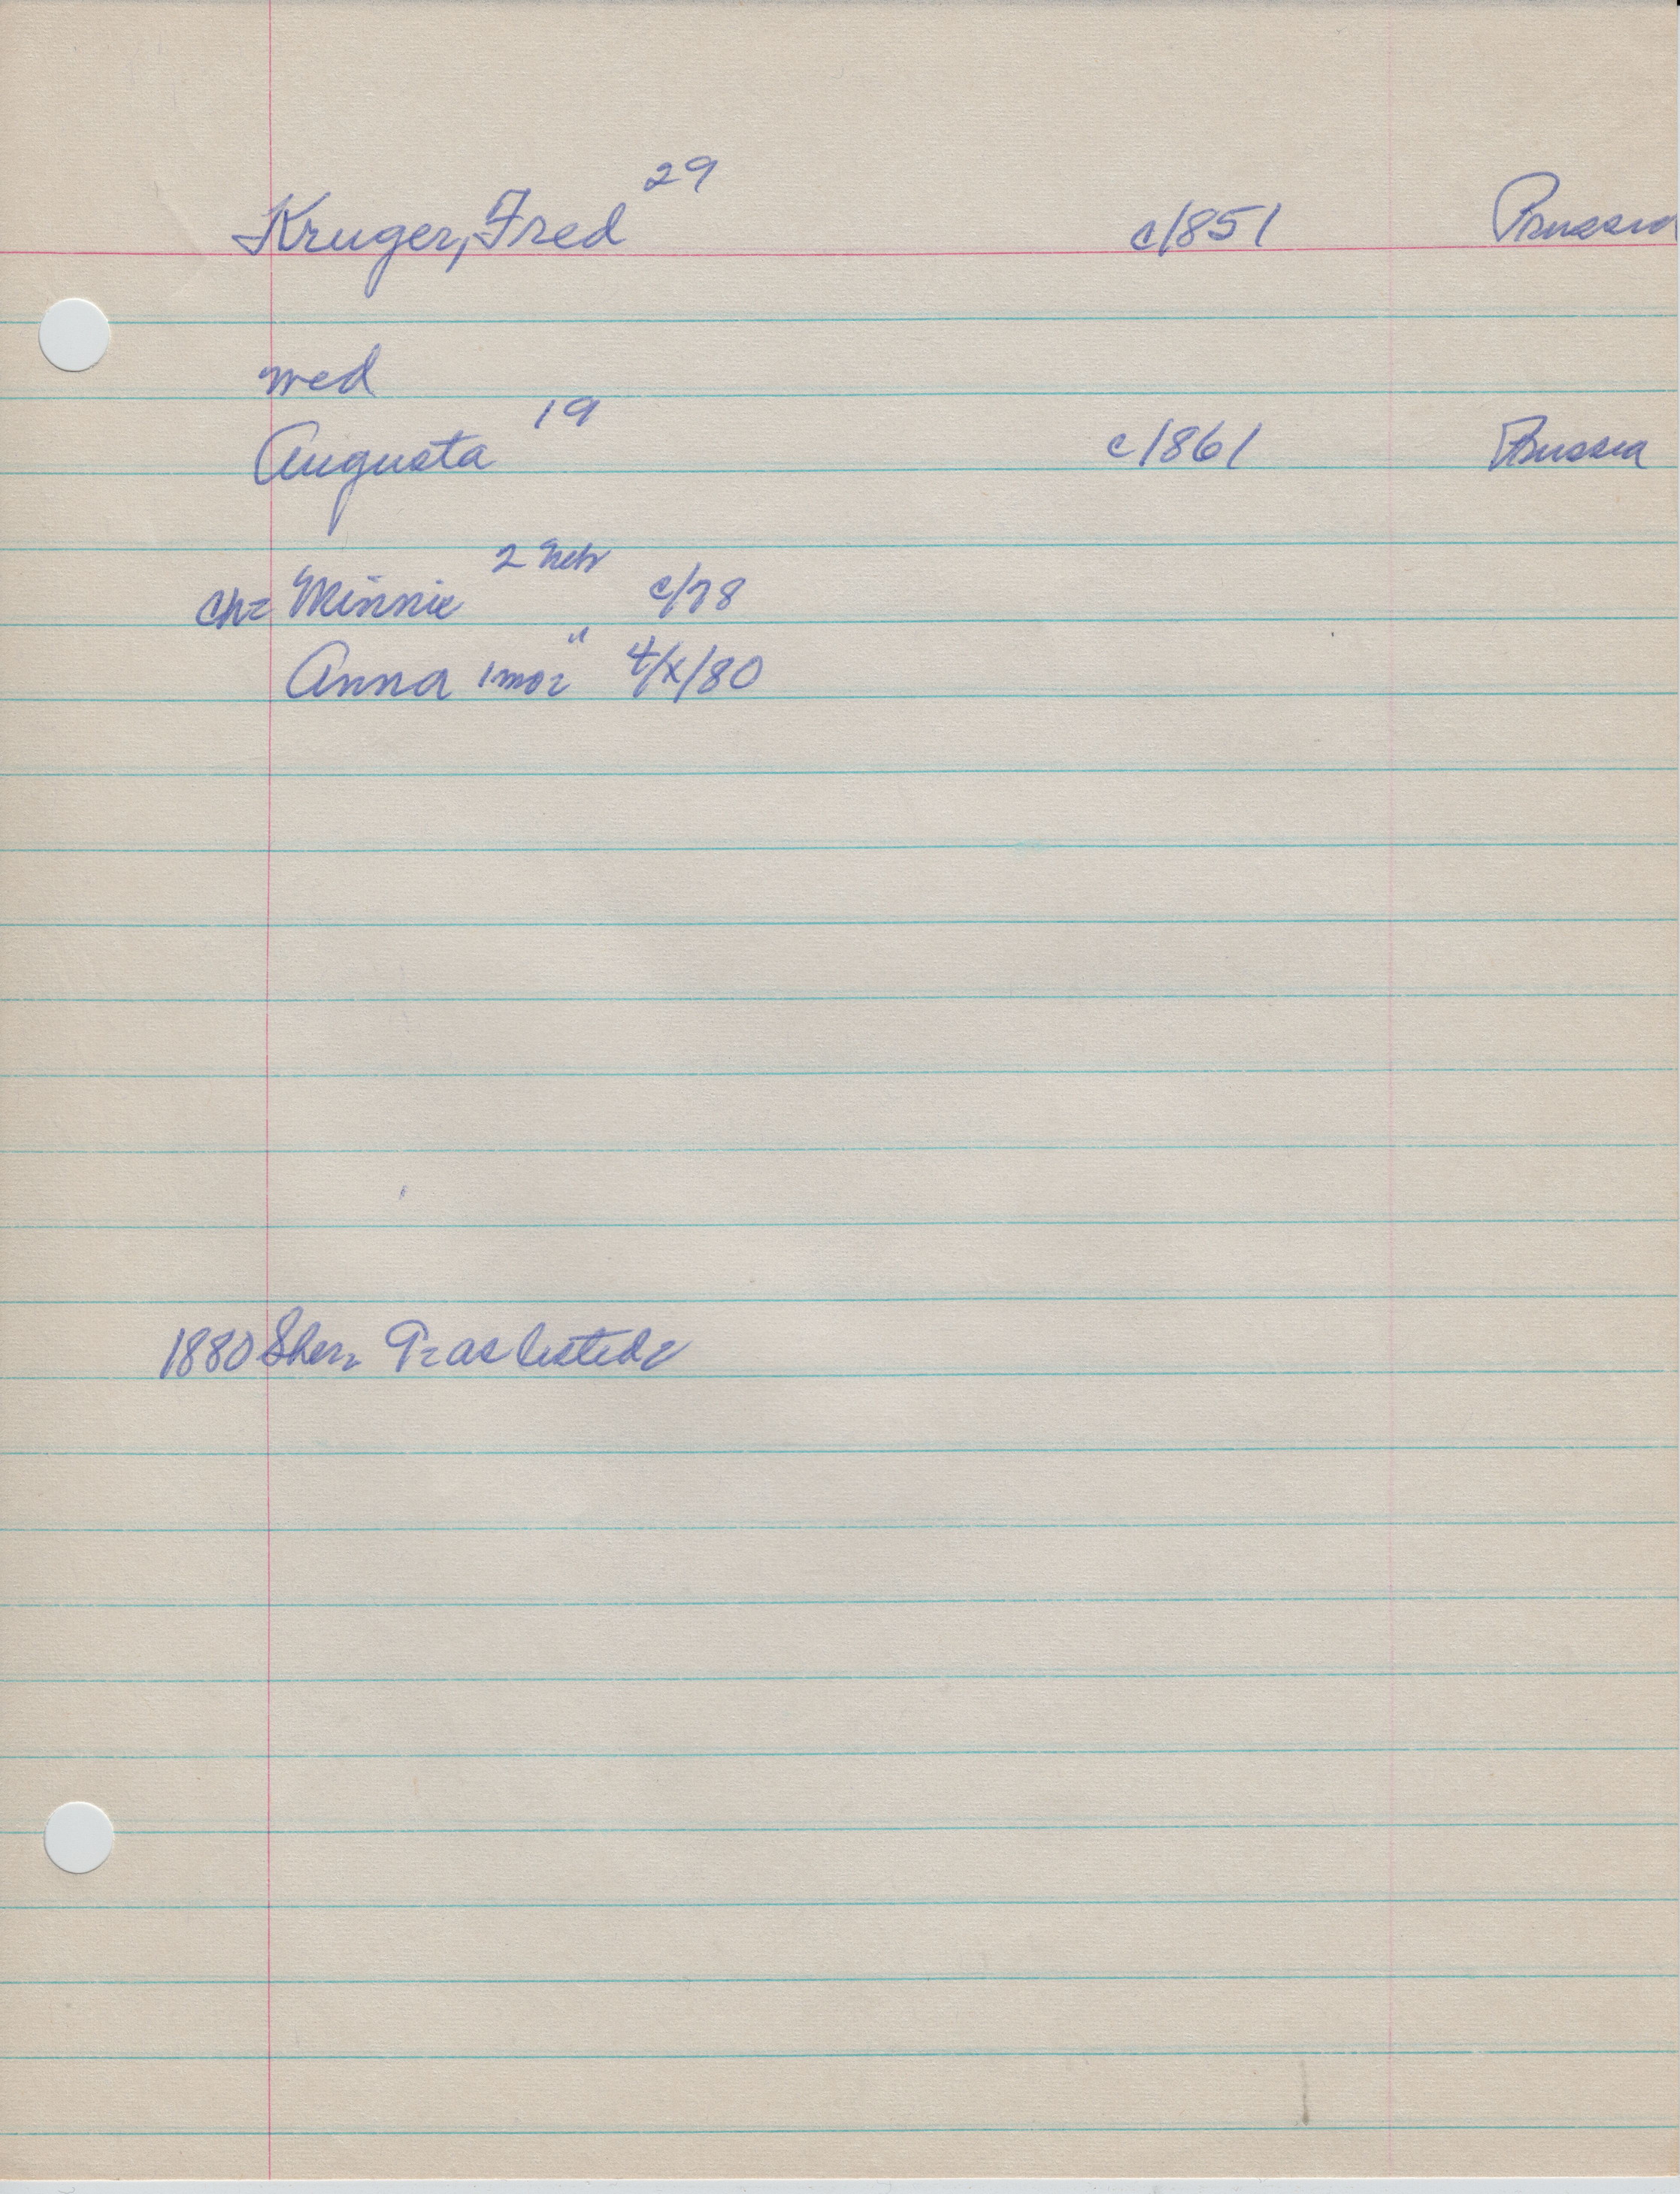 Kruger, Fred 29 c1851 Prussia
wed
Augusta 19 c1861 Prussia
ch= Minnie 2 Nebr c/78
Anna 1mo. " 4/x/80
1880 Sher. as listed.